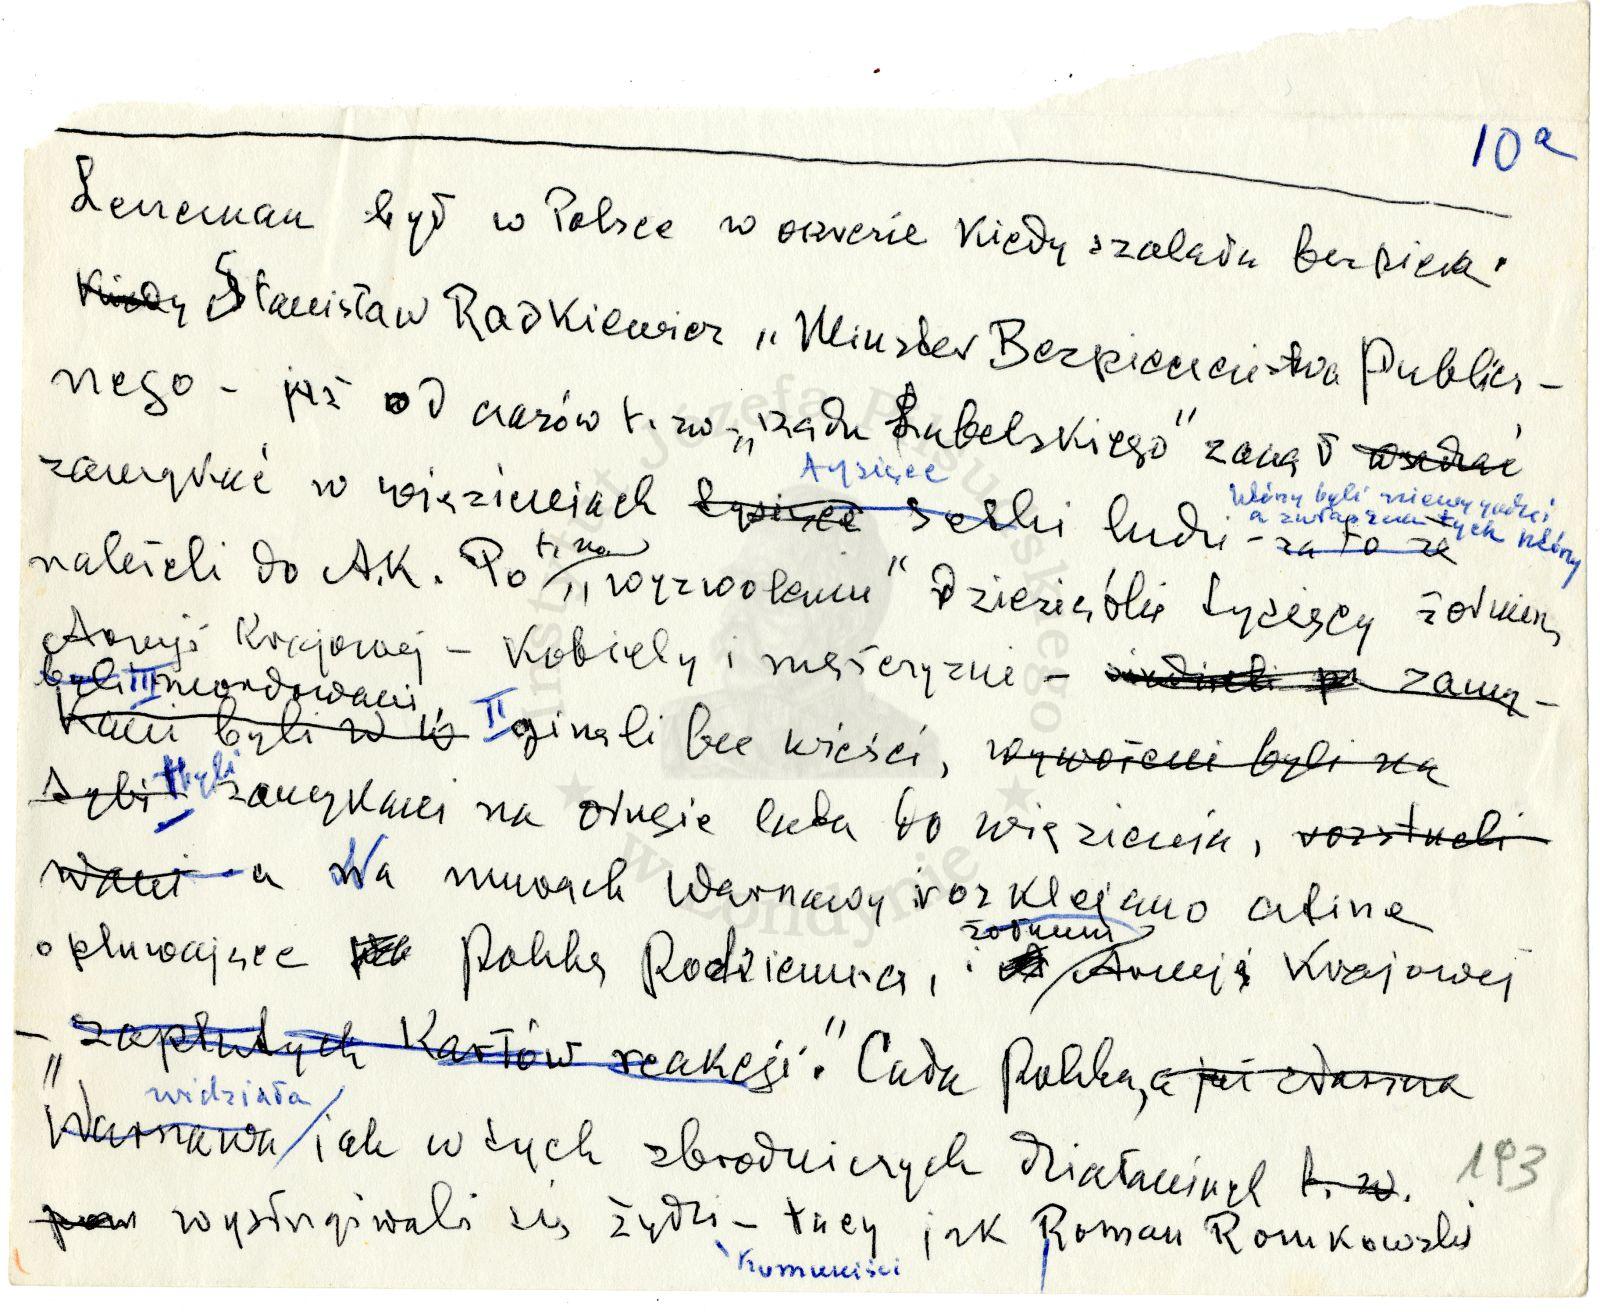 10a
Leneman był w Polsce w okresie kiedy szalała bezpieka.
Kiedy Stanisław Radkiewicz „Minister Bezpieczeństwa Publicz-
nego - już od czasów t. zw. „rządu Lubelskiego" zaczął
tysiące
zamykać w więzieniach tysiące setki ludzi - za to że
którzy byli niewygodni
a zwłaszcza tych którzy
t. zw
należeli do A.K. Po „wyzwoleniu" dziesiątki tysięcy żołnierzy
Armji Krajowej - Kobiety i mężczyźni - zamy-
byli III mordowani
kani byli w II ginęli bez wieści, wywożeni byli na
Sybir byli zamykani na długie lata do więzienia, rozstrzeli
wani a Na murach Warszawy rozklejano afisze
żołnierzy
opluwające Polskę Podziemną, i Armji Krajowej
- "zaplutych Karłów reakcji." Cała Polska, a już zwłaszcza
widziała
Warszawa jak w tych zbrodniczych działaniach t. zw.
193
wysługiwali się żydzi - tacy jak Roman Romkowski
Komuniści
Instytut Józefa Piłsudskiego
w Londynie